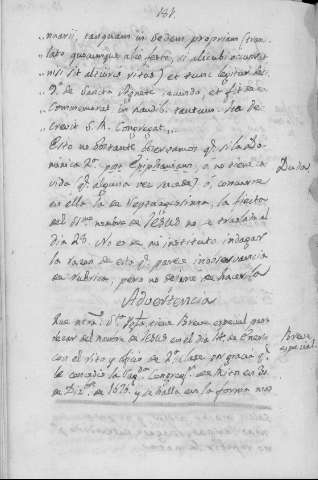 157.
,, nuarii, tanquam in sedem propriam (trans
,, lato quocumque alio festo, si alicubi occurrit
,, nisi sit altioris ritus) et tunc legitur
,, de Sancta Agnete secundo, et fit ei
,, Commemorat in Laudib. tantum. Ita de
,, crevit S. R. Congregat. ,,
Esto no obstante observamos q.e si la Do-
minica 2.a post Epiphaniam, ó no viene im-
pedida (q.e alguna vez sucede) ó, concurre
en ella la de Septuagesima, la fiesta
del SS.mo nombre de Jesus no se traslada al
dia 28. No es de mi instituto indagar
la razon de esto q.e parece inobservancia
de rubrica, pero no dejaré de hacerla
Duda
Advertencia
Que tiene Breve especial para
rezar del nombre de Jesus en el dia 14 de Enero
con el rito y oficio de 2.a clase por gracia q.e
le concedio la Sag.da Congreg.n de Ritos en
de Diz.bre de 1676. y se halla en la forma
Breve
especial